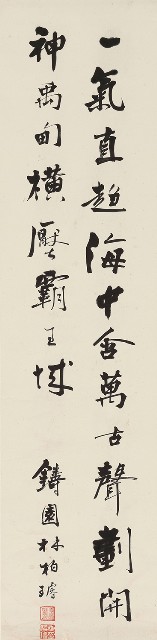 一氣直趨海中含萬古聲劃開
神禹甸橫壓霸王城 鑄園林柏璿